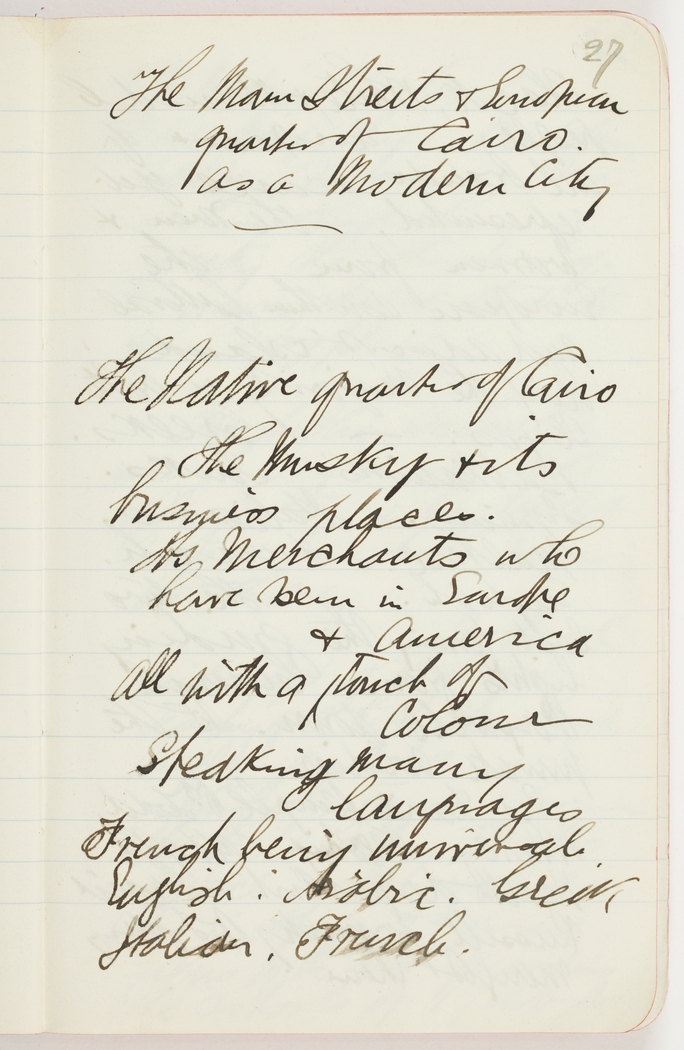 27
The Main Streets & European
quarter of Cairo.
as a Modern City
The Native quarter of Cairo
The Musky & its
business places.
Its Merchants who
have been in Europe
& America
all with a touch of
Colour
Speaking many
languages
French being universal.
English. Arabic. Greek
Italian. French.